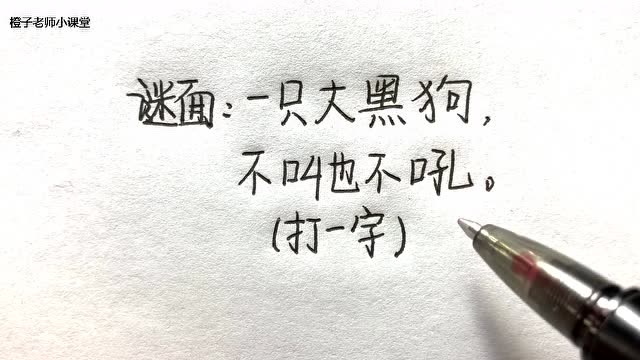 橙子老师小课堂
谜面:一只大黑狗,
不叫也不吼。
(打一字)